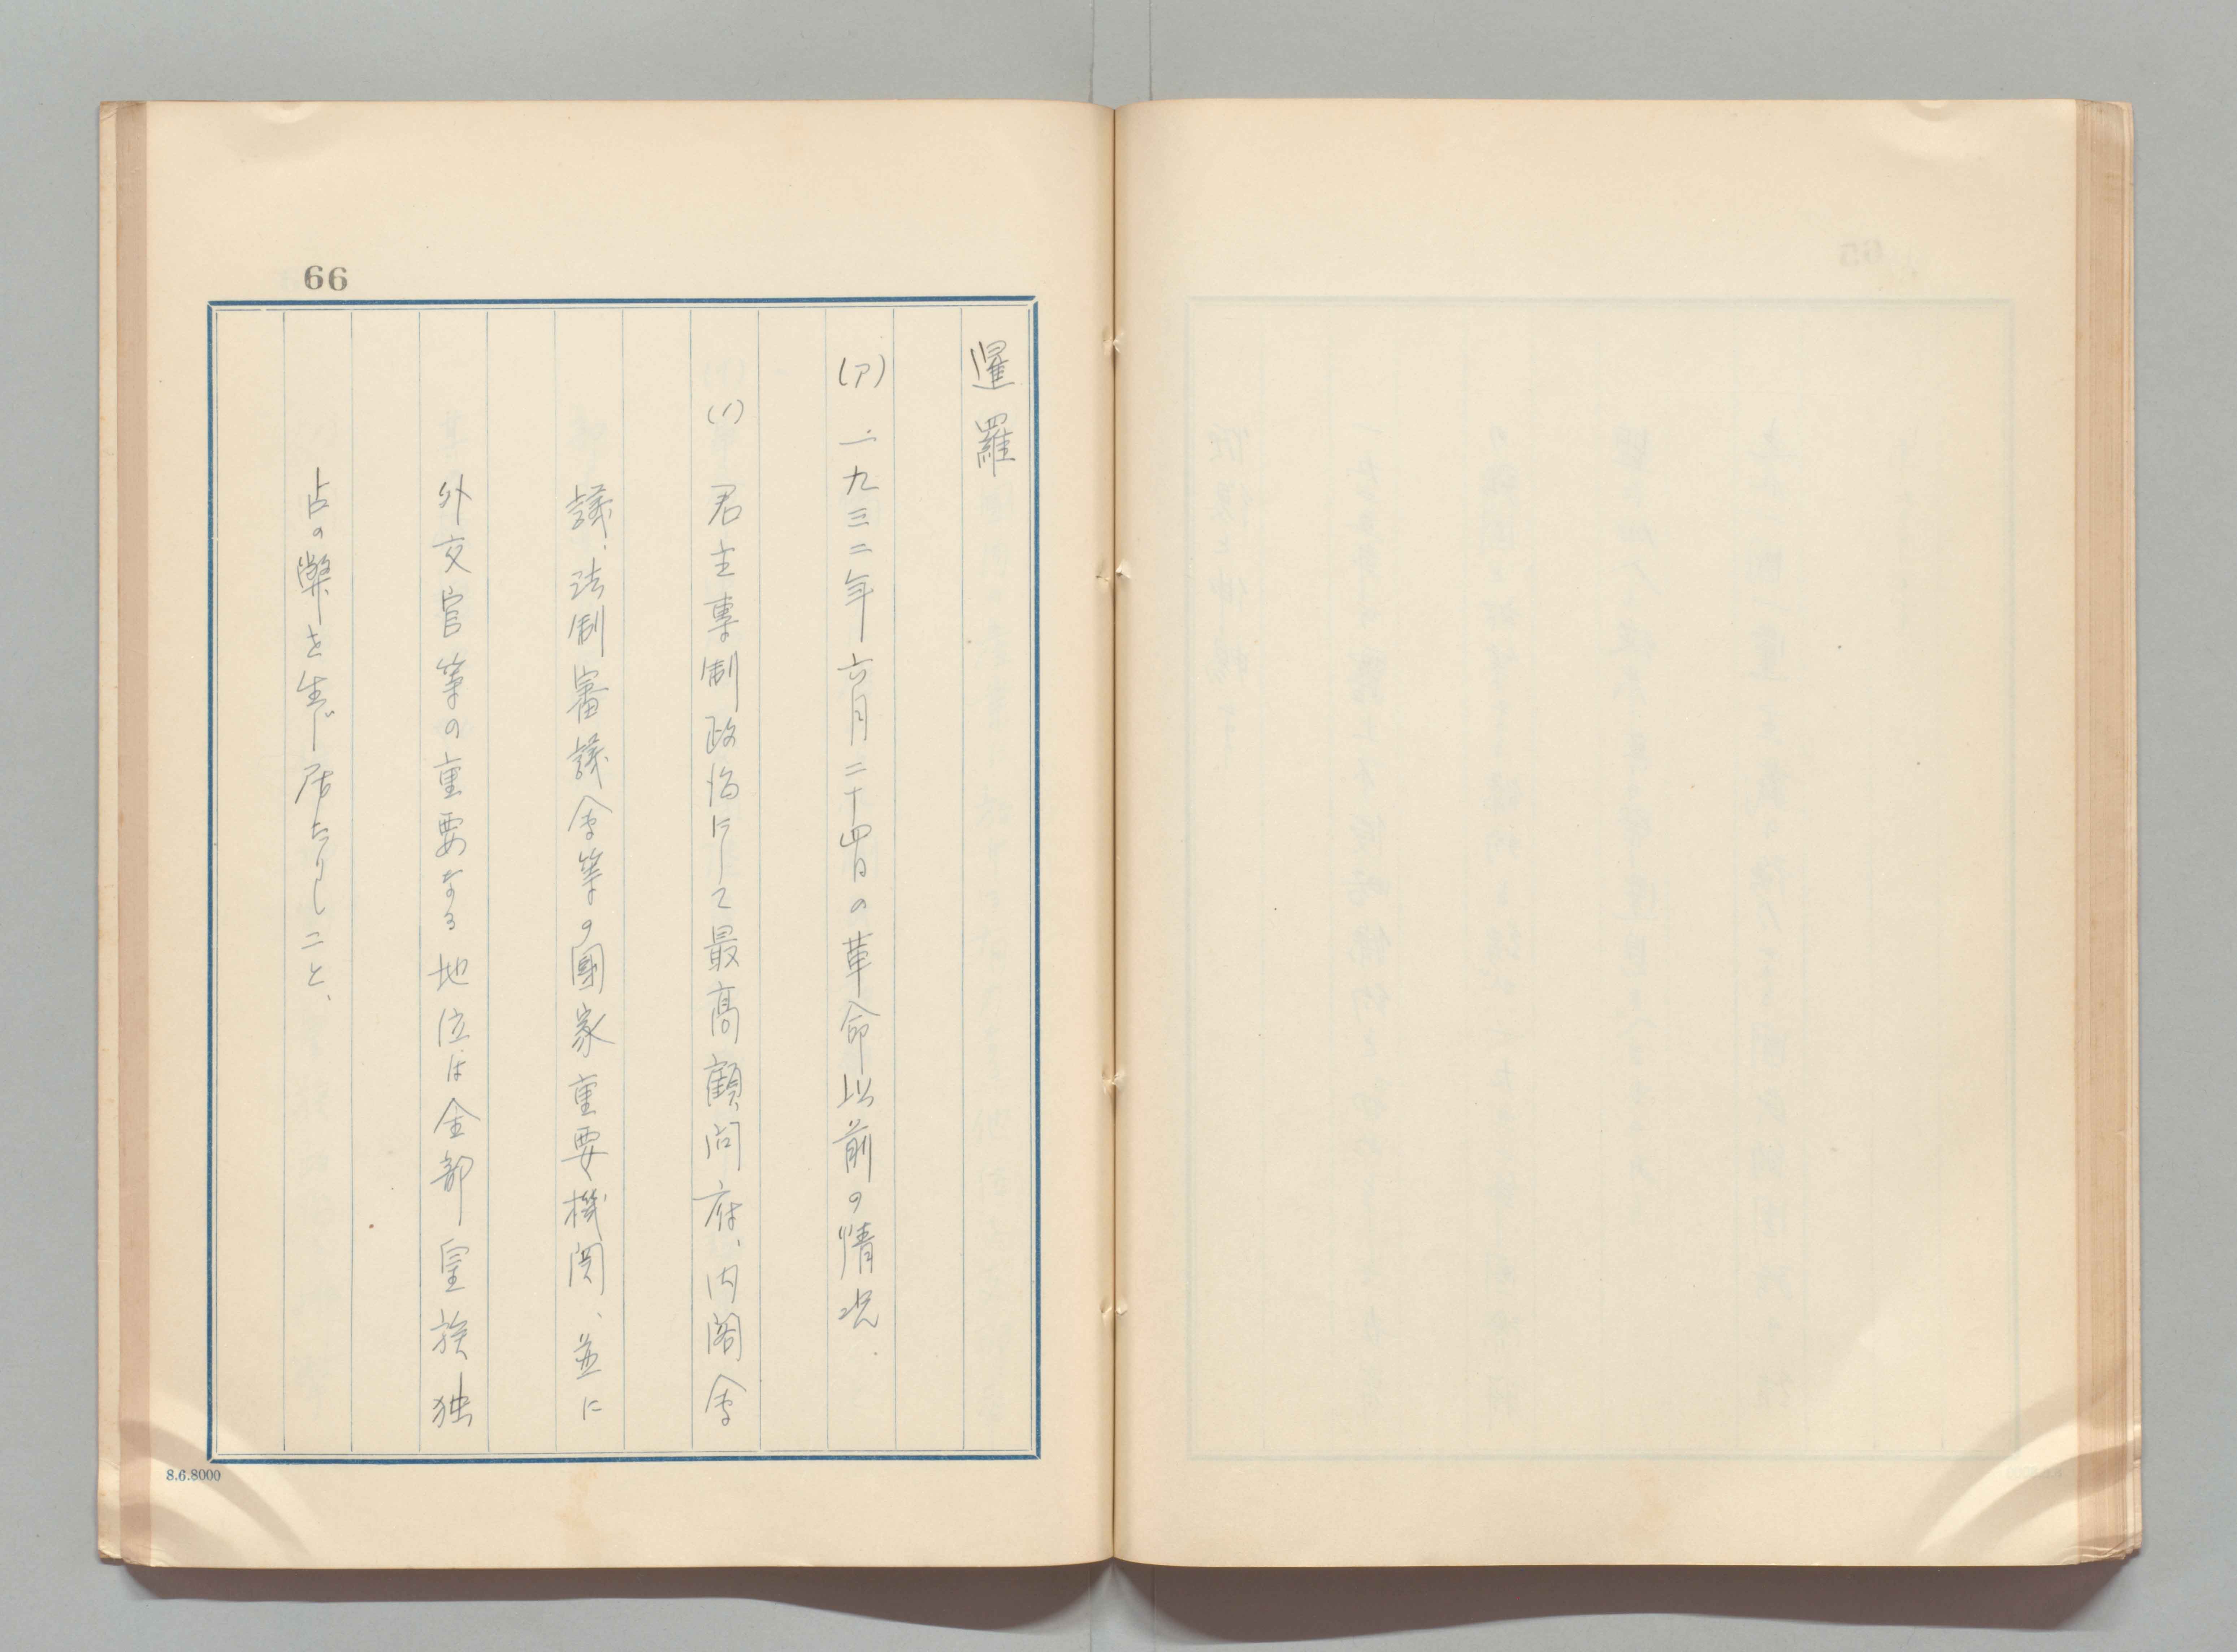 66
暹羅
(ア) 一九三二年六月二十四日の革命以前の情況
(1) 君主專制政治にして最高顧問府、内閣会
議、法制審議会等の國家重要機関、並に
外交官等の重要なる地位は全部皇族独
占の弊を生じ居たりしこと、
8.6.8000